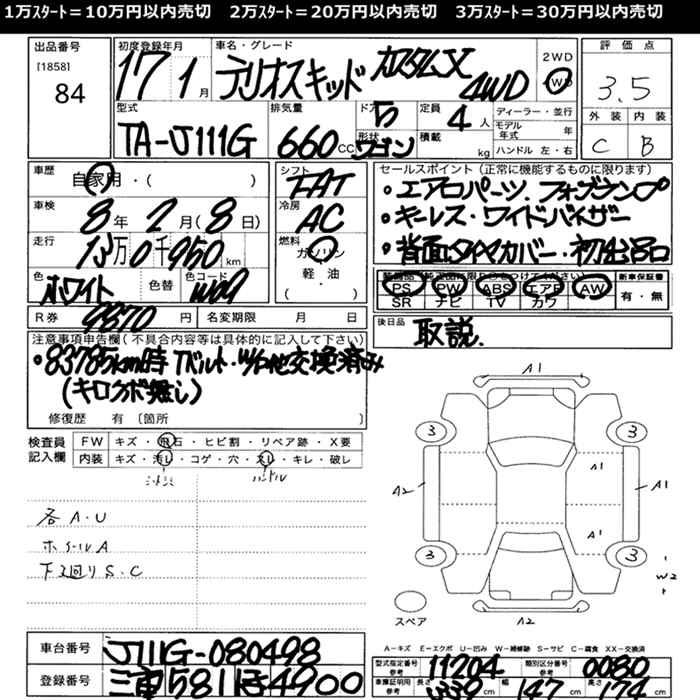 1万ｽﾀｰﾄ＝10万円以内売切 2万ｽﾀｰﾄ＝20万円以内売切 3万ｽﾀｰﾄ＝30万円以内売切
出品番号 初度登録年月 車名・グレード 評価点
[1858] 84
17 1月 テリオスキッド カスタムX 4WD 2WD
3.5
型式 排気量 ドア 5 定員 4人 ディーラー・並行
モデル年式 年
外装 内装
TA-J111G 660cc 形状 ワゴン 積載 kg ハンドル 左・右
C B
車歴 自家用・( ) シフト FAT
セールスポイント（正常に機能するものに限ります）
・エアロパーツ.フォグランプ
車検 8年2月(8日) 冷房 AC
・キーレス・ワイドバイザー
走行 13万0千950km 燃料 ガソリン
・背面タイヤカバー・初出品
軽・油
( )
色 ホワイト 色替 色コード W09
PS PW ABS エアB AW 新車保証書
SR ナビ TV カワ 有・無
R券 9870円 名変期限 月 日
後日品 取説.
注意事項申告欄（不具合内容等は具体的に記入して下さい）
・83785km時 Tベルト・W/P他交換済み
(キロクボ無し)
修復歴 有〔箇所 〕
検査員記入欄 FW キズ・飛石・ヒビ割・リペア跡・X要
内装 キズ・汚レ・コゲ・穴・スレ・キレ・破レ
シート ハンドル
各A.U
ホイールA
下廻りS.C
A1
3 3
A1
A2 A1
A1
3 3
W2
スペア A2
A－キズ E－エクボ U－凹み W－補修跡 S－サビ C－腐食 XX－交換済
車台番号 J111G-080498
型式指定番号 参考 11204 類別区分番号 参考 0080
登録番号 三重581ほ4900
車庫証明用 参考 長さ 339cm 幅 147cm 高さ 174cm